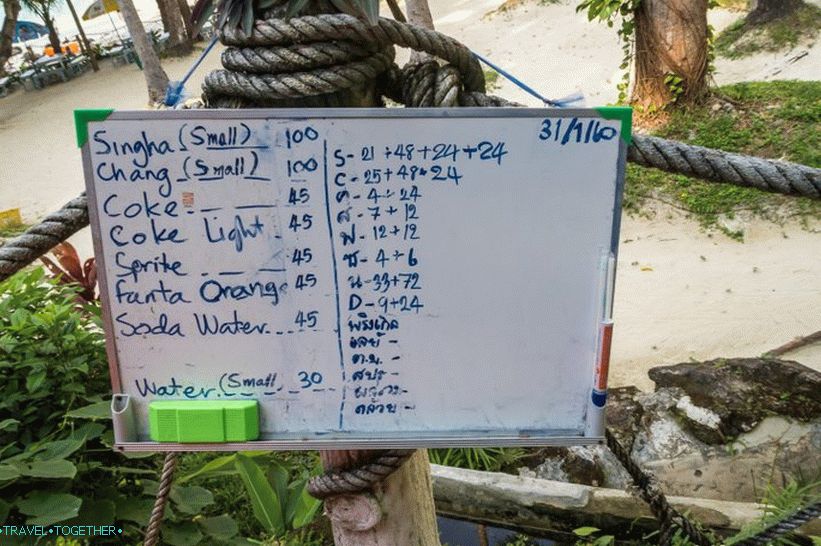 31/1/60
Singha (Small) 100
Chang (Small) 100
Coke 45
Coke Light 45
Sprite 45
Fanta Orange 45
Soda Water 45
Water (Small 30
S - 21 + 48 + 24 + 24
C - 25 + 48 + 24
ค - 4 + 24
ส - 7 + 12
ฟ - 12 + 12
ซ - 4 + 6
น - 33 + 72
D - 9 + 24
พริงเกิล
เลย์ -
ต.ม. -
สปร -
กล้วย -
•TRAVEL•TOGETHER•